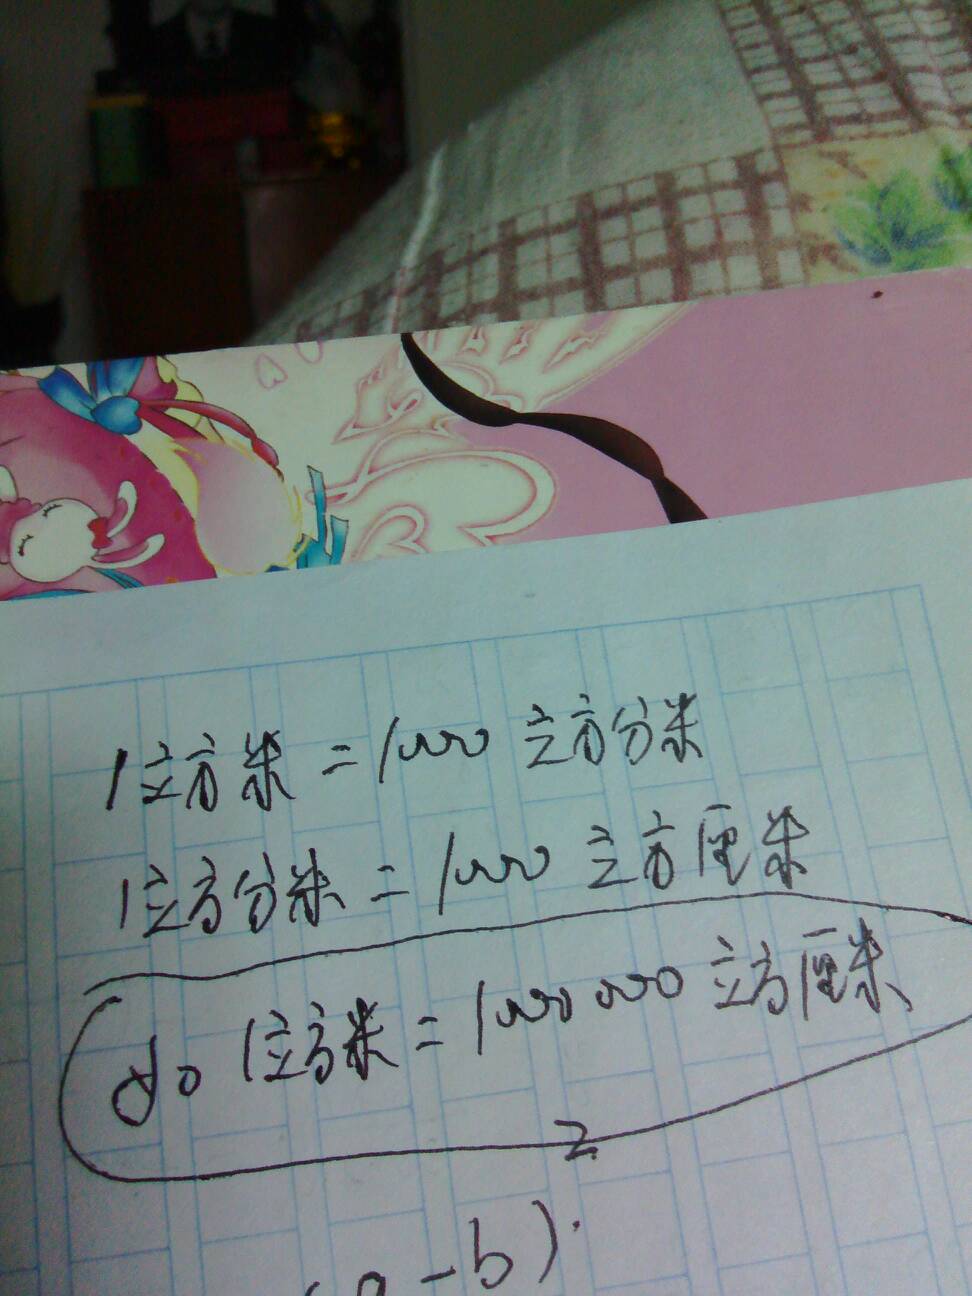 1立方米=1000立方分米
1立方分米=1000立方厘米
do 1立方米=1000000立方厘米
2
(a-b)